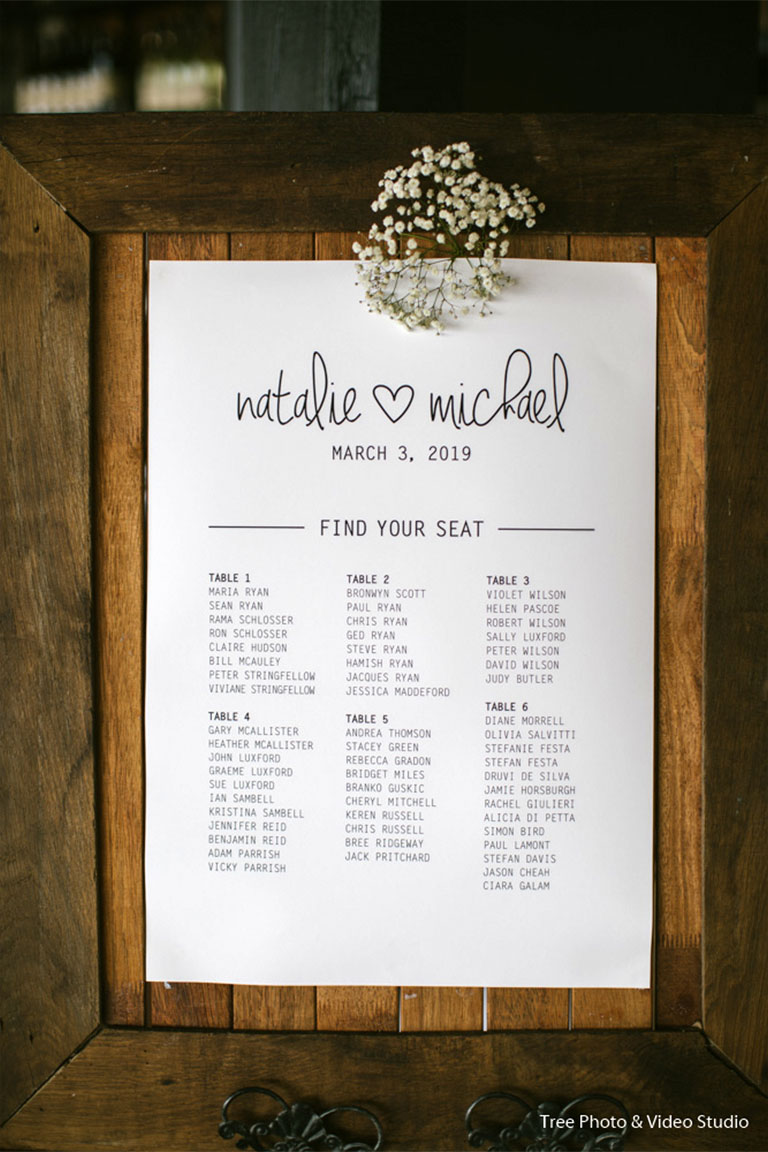 natalie ♡ michael
MARCH 3, 2019
FIND YOUR SEAT
TABLE 1
MARIA RYAN
SEAN RYAN
RAMA SCHLOSSER
RON SCHLOSSER
CLAIRE HUDSON
BILL MCAULEY
PETER STRINGFELLOW
VIVIANE STRINGFELLOW
TABLE 2
BRONWYN SCOTT
PAUL RYAN
CHRIS RYAN
GED RYAN
STEVE RYAN
HAMISH RYAN
JACQUES RYAN
JESSICA MADDEFORD
TABLE 3
VIOLET WILSON
HELEN PASCOE
ROBERT WILSON
SALLY LUXFORD
PETER WILSON
DAVID WILSON
JUDY BUTLER
TABLE 4
GARY MCALLISTER
HEATHER MCALLISTER
JOHN LUXFORD
GRAEME LUXFORD
SUE LUXFORD
IAN SAMBELL
KRISTINA SAMBELL
JENNIFER REID
BENJAMIN REID
ADAM PARRISH
VICKY PARRISH
TABLE 5
ANDREA THOMSON
STACEY GREEN
REBECCA GRADON
BRIDGET MILES
BRANKO GUSKIC
CHERYL MITCHELL
KEREN RUSSELL
CHRIS RUSSELL
BREE RIDGEWAY
JACK PRITCHARD
TABLE 6
DIANE MORRELL
OLIVIA SALVITTI
STEFANIE FESTA
STEFAN FESTA
DRUVI DE SILVA
JAMIE HORSBURGH
RACHEL GIULIERI
ALICIA DI PETTA
SIMON BIRD
PAUL LAMONT
STEFAN DAVIS
JASON CHEAH
CIARA GALAM
Tree Photo & Video Studio